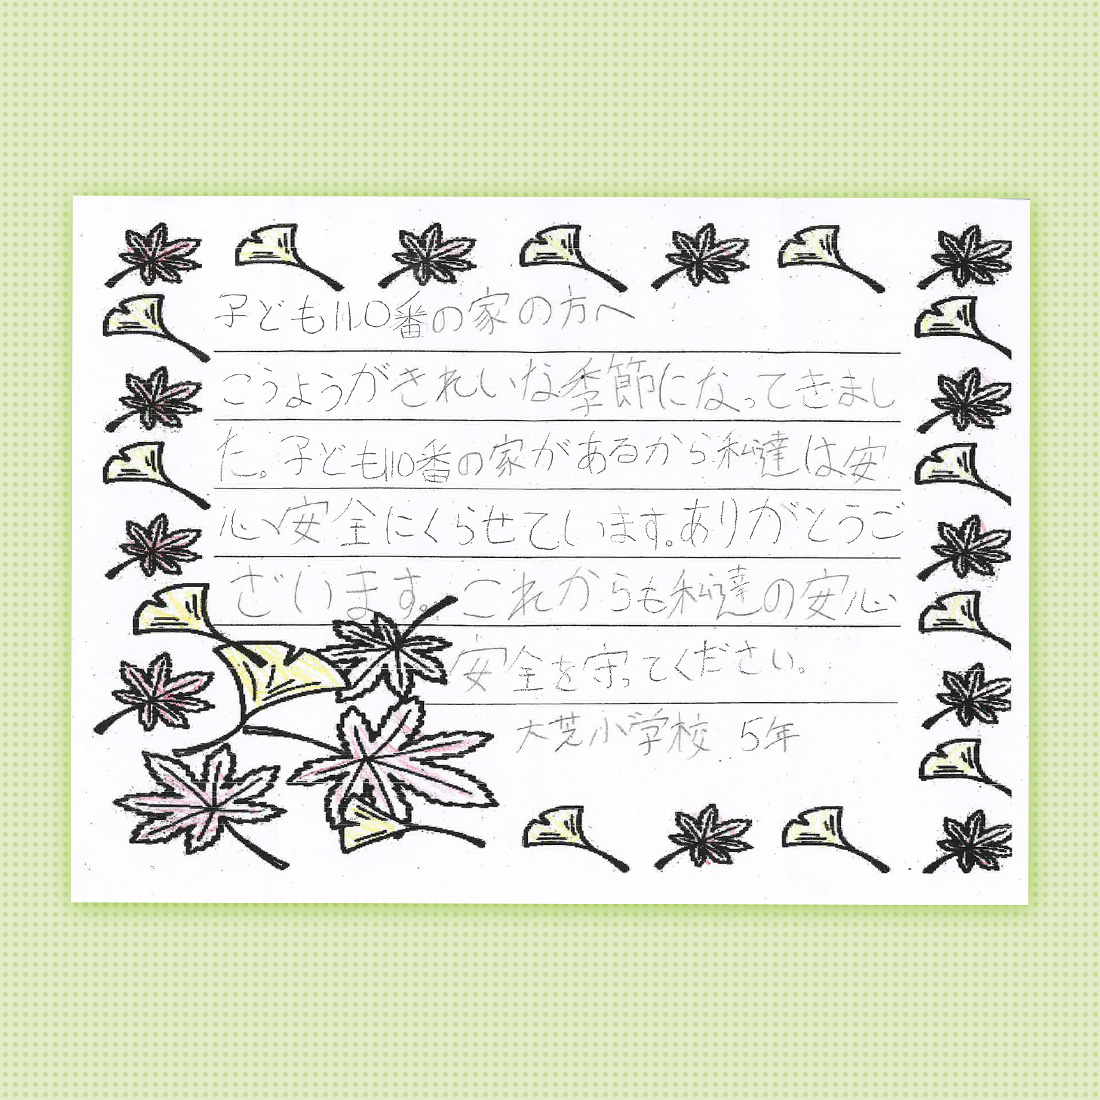 子ども110番の家の方へ
こうようがきれいな季節になってきまし
た。子ども110番の家があるから私達は安
心、安全にくらせています。ありがとうご
ざいます。これからも私達の安心
安全を守ってください。
大芝小学校 5年